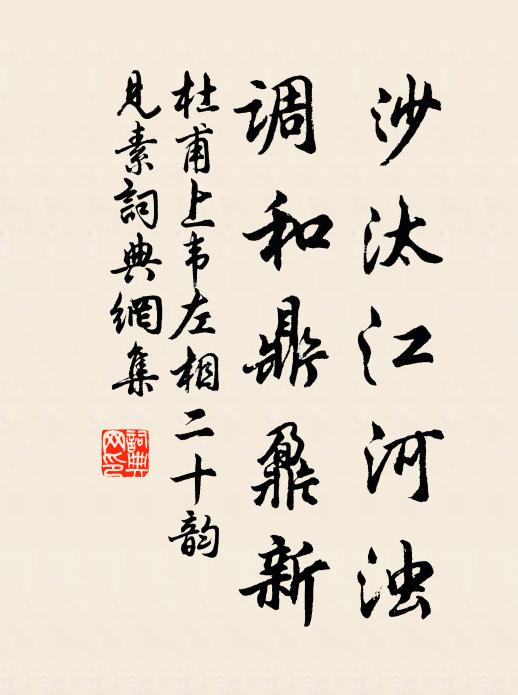 沙汰江河浊
调和鼎鼐新
杜甫上韦左相二十韵
見素詞典網集
詞典网印